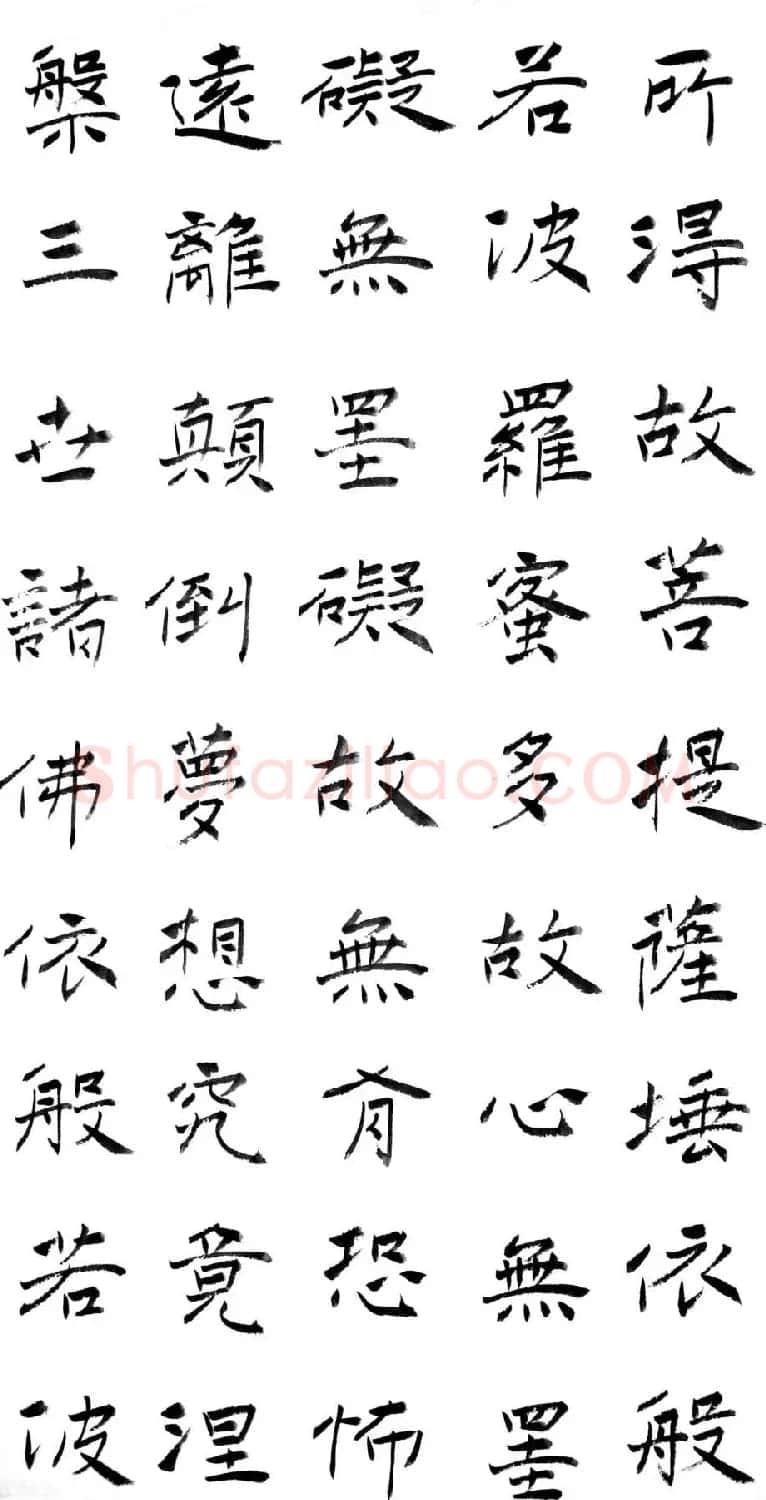 所得故菩提薩埵依般
若波羅蜜多故心無罣
礙無罣礙故無有恐怖
遠離顛倒夢想究竟涅
槃三世諸佛依般若波
Shufaziliao.COM